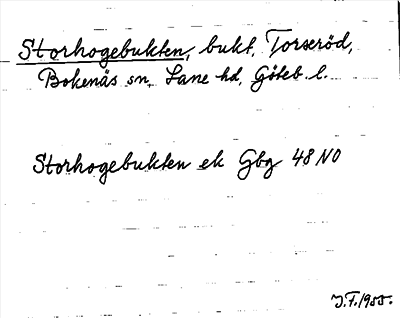 Storhogebukten, bukt, Torseröd,
Bokenäs sn, Lane hd, Göteb. l.
Storhogebukten ek Gbg 48 NO
J.F. 1955.